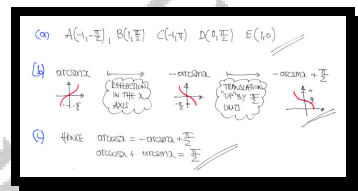 (a) A(-1,-π/2), B(1,π/2) C(-1,π) D(0,π/2) E(1,0)
(b) arcsinx → -arcsinx → -arcsinx + π/2
REFLECTION IN THE x AXIS
TRANSLATION "UP" BY π/2 UNITS
(c) HENCE arccosx = -arcsinx + π/2
arccosx + arcsinx = π/2